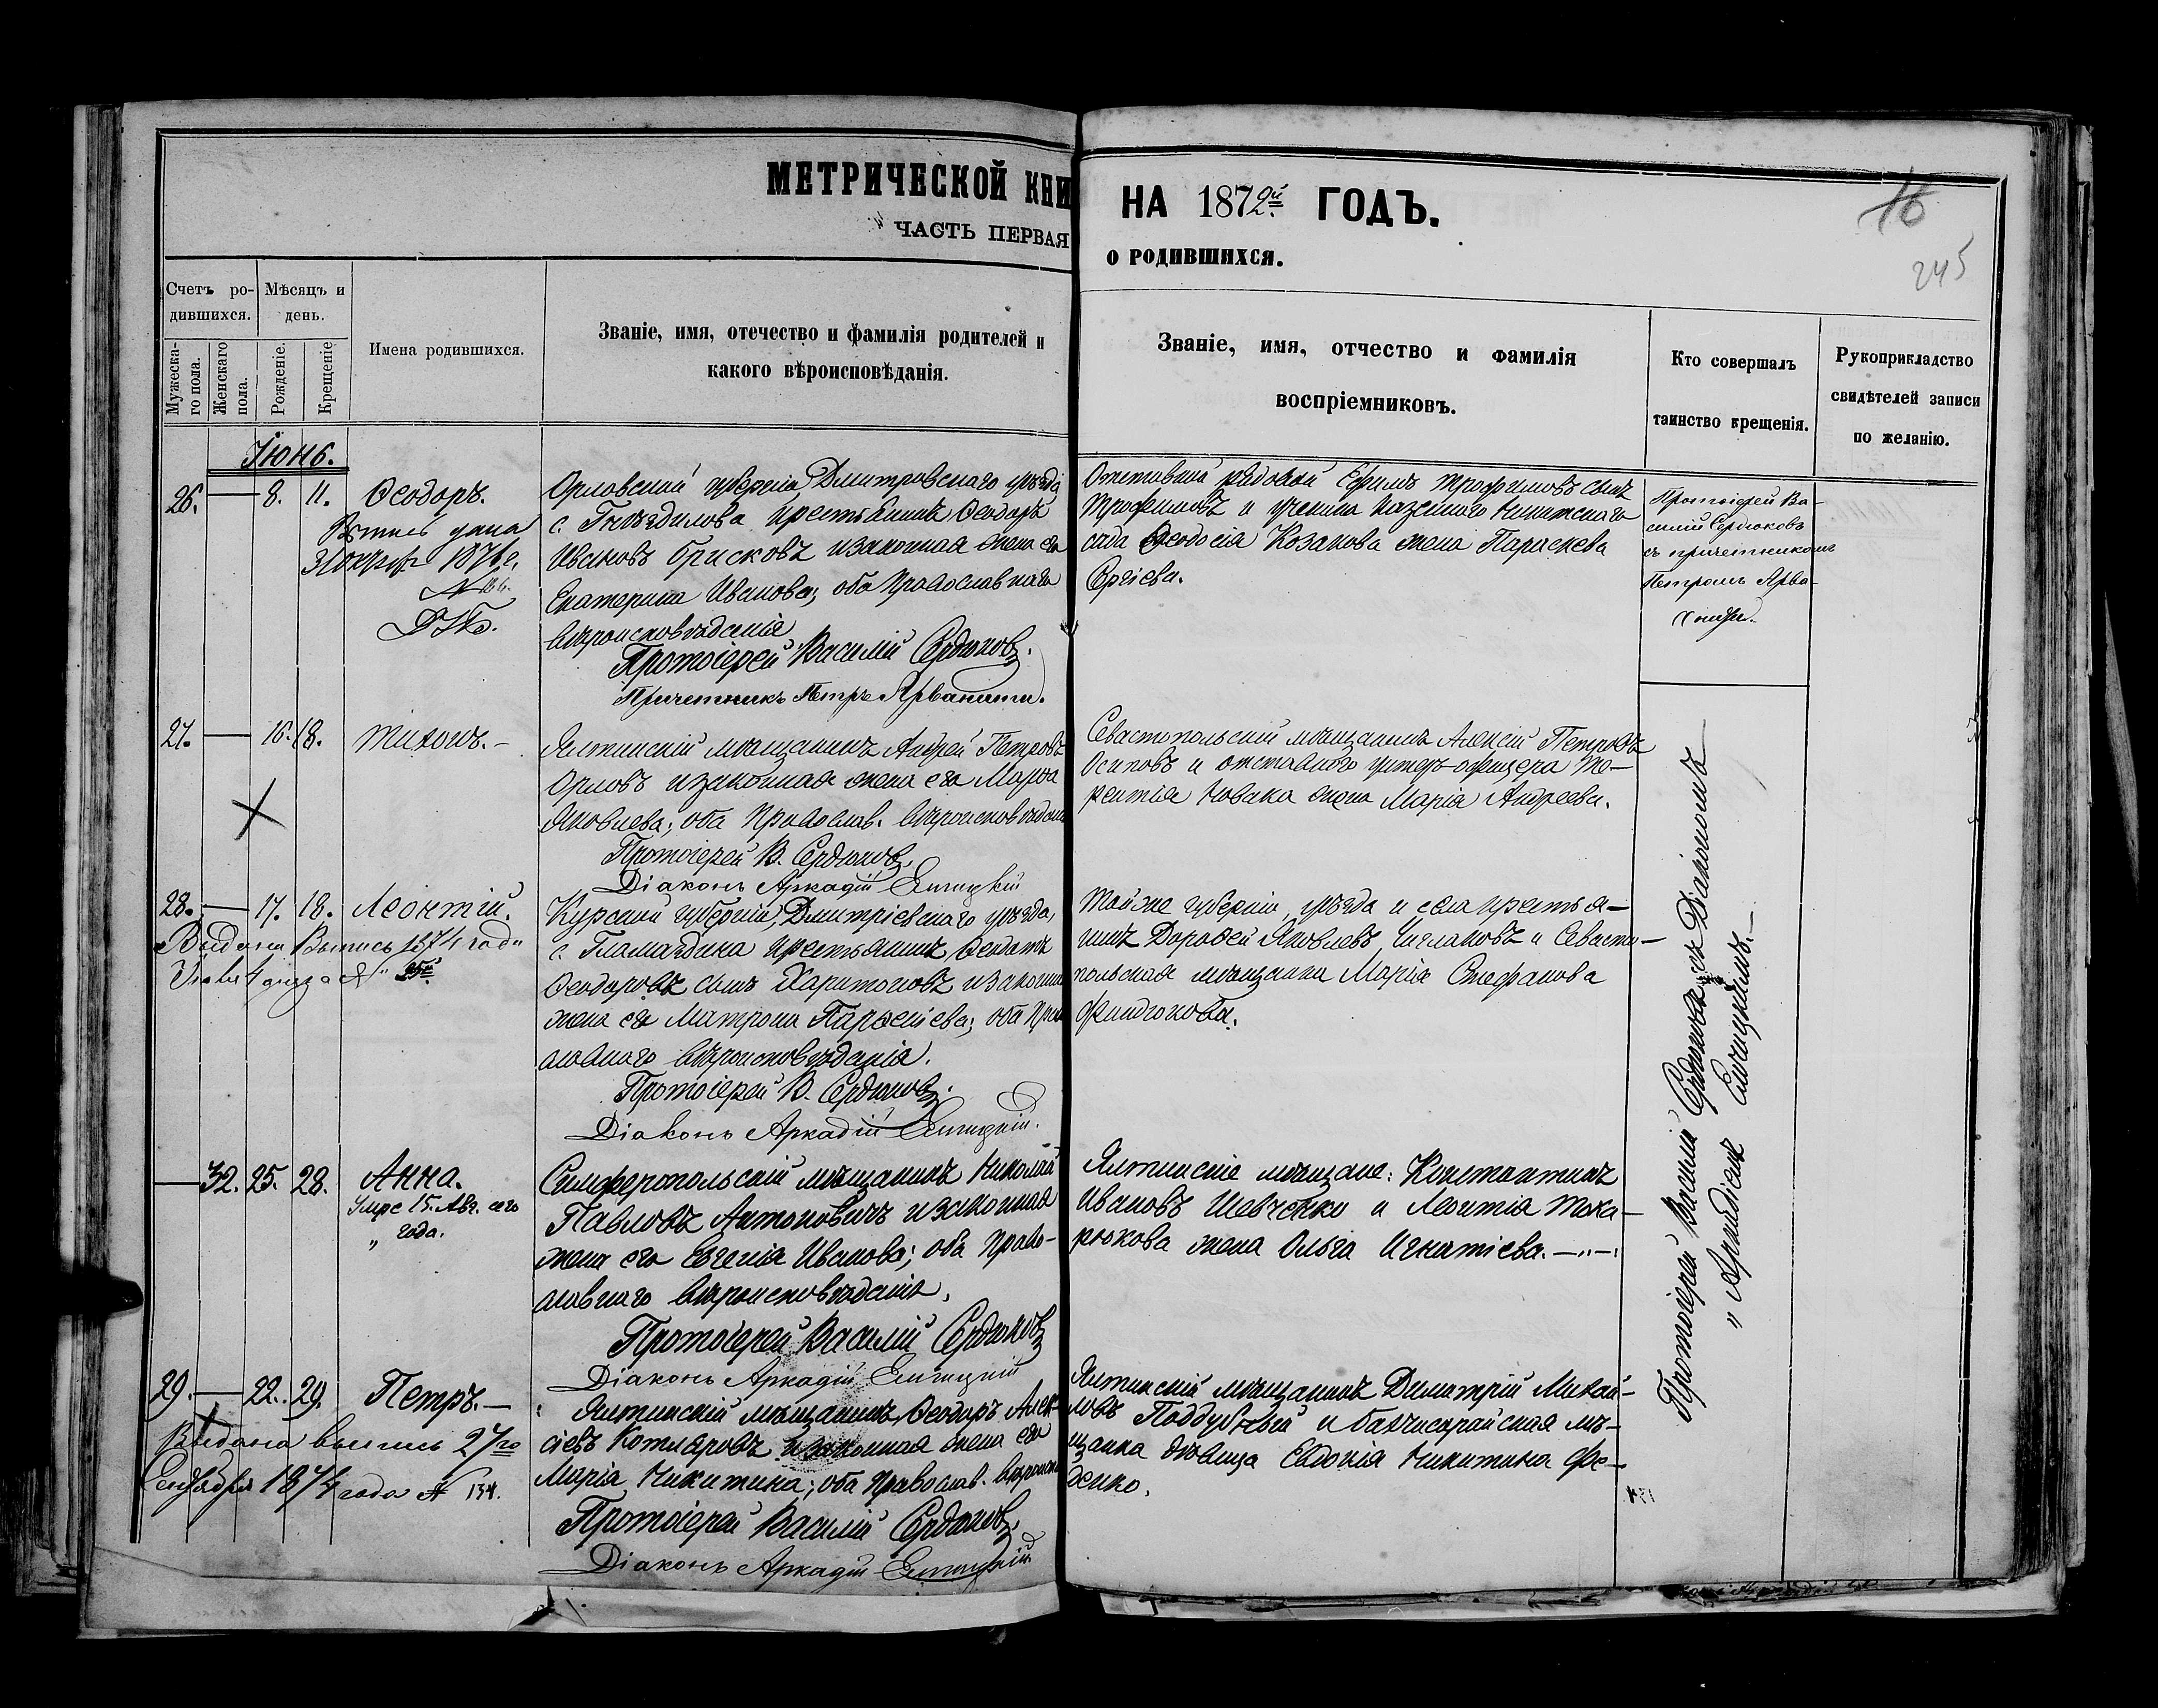 МЕТРИЧЕСКОЙ КНИ
ЧАСТЬ ПЕРВАЯ
НА 1872й ГОДЪ.
О РОДИВШИХСЯ.
16
245
Счетъ ро-
дившихся.
Мужеска-
го пола.
Женскаго
пола.
Мѣсяцъ и
день.
Рожденіе.
Крещеніе
Имена родившихся.
Званіе, имя, отечество и фамилія родителей и
какого вѣроисповѣданія.
Званіе, имя, отчество и фамилія
воспріемниковъ.
Кто совершалъ
таинство крещенія.
Рукоприкладство
свидѣтелей записи
по желанію.
Іюнь.
26. — 8. 11. Ѳеодоръ.
Орловской губерніи, Дмитровскаго уѣзда
с. Гнѣздилова крестьянинъ Ѳеодоръ
Ивановъ и законная жена его
Екатерина Иванова; оба православнаго
вѣроисповѣданія
Протоіерей Василій Сердюковъ.
Причетникъ Петръ Арванити.
Отставной рядовой Ефимъ Трофимовъ сынъ
Трофимовъ и ученика казеннаго Никитскаго
сада Ѳеодосія Козакова жена Параскева
Сергіева.
Протоіерей Ва-
силій Сердюковъ
съ причетникомъ
Петромъ Арва-
Выпись дана
1876 г.
27. — 16. 18. Тихонъ. —
Ялтинскій мѣщанинъ Андрей Петровъ
Орловъ и законная жена его Марѳа
Яковлева; оба православ. вѣроисповѣдан
Протоіерей В. Сердюковъ.
Діаконъ Аркадій
Севастопольскій мѣщанинъ Алексій Петровъ
Осиповъ и отставнаго унтер-офицера Те-
рентія Новака жена Марія Андреева.
28. — 17. 18. Леонтій.
Выдана Выпись 1874 года
Курской губерніи, Дмитріевскаго уѣзда,
с. Гламаздина крестьянинъ Ѳеодотъ
Ѳеодоровъ сынъ Харитоновъ и законна
жена его Матрона Парѳеніева; оба прав
ославнаго вѣроисповѣданія.
Протоіерей В. Сердюковъ.
Діаконъ Аркадій
Той же губерніи, уѣзда и села крестья-
нинъ Дороѳей Яковлевъ и Севасто-
польская мѣщанка Марія Стефанова
Финдюкова.
— 32. 25. 28. Анна.
Умре 15. Авг. сего
„ года.
Симферопольскій мѣщанинъ Николай
Павловъ Антоновичъ и законная
жена его Евгенія Иванова; оба право-
славнаго вѣроисповѣданія.
Протоіерей Василій Сердюковъ
Діаконъ Аркадій
Ялтинскіе мѣщане: Константинъ
Ивановъ Шевченко и Леонтія Тока-
рюкова жена Ольга Игнатіева. —„—.
29. — 22. 29. Петръ. —
Выдана выпись 27го
Сентября 1874 года № 134.
Ялтинскій мѣщанинъ Ѳеодоръ Алек-
сіевъ Котляровъ и законная жена его
Марія Никитина; оба православ. вѣроисп
Протоіерей Василій Сердюковъ.
Діаконъ Аркадій
Ялтинскій мѣщанинъ Димитрій Михай-
ловъ Поддубный и бахчисарайская мѣ-
щанка дѣвица Евдокія Никитина Фе-
денко.
Протоіерей Василій Сердюковъ съ Діакономъ
„ Аркадіемъ